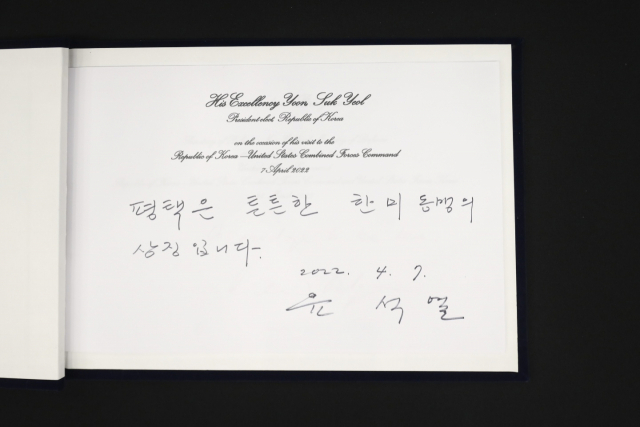 His Excellency Yoon Suk Yeol
President-elect, Republic of Korea
on the occasion of his visit to the
Republic of Korea – United States Combined Forces Command
7 April 2022
평택은 튼튼한 한미동맹의
상징입니다.
2022. 4. 7.
윤 석 열